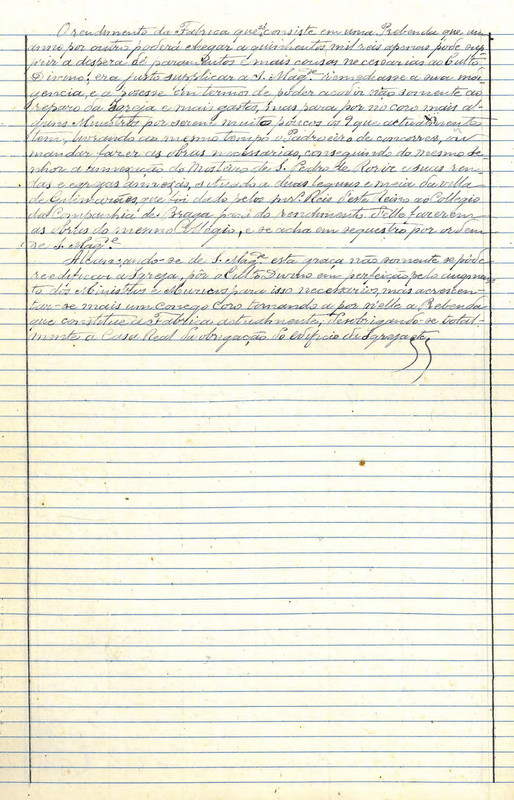 O rendimento da Fabrica que consiste em uma Prebenda que um
anno por outro poderá chegar a quinhentos mil reis apenas pode sup-
prir á despeza de paramentos e mais cousas necessarias ao Culto
Divino; era justo supplicar a S. Mag.e remediasse a sua indi-
gencia, e a pozesse em termos de poder acudir não somente ao
reparo da Igreja e mais gastos, mas para por no coro mais al-
guns Ministros por serem muito poucos os que actualmente
tem, livrando ao mesmo tempo o Padroeiro de concorrer, ou
mandar fazer as obras necessarias conseguindo do mesmo Se-
nhor a annexação do Mosteiro de S. Pedro de Roriz e suas ren-
das e egrejas annexas, situado a duas leguas e meia da villa
de Guimarães, que foi dado pelos Reis deste Reino ao Collegio
da Companhia de Braga para do rendimento delle fazerem
as obras do mesmo Collegio, e se acha em sequestro por ordem
de S. Mag.e
Alcançando-se de S. Mag.e esta graça não somente se pode
reedificar a Igreja, pôr o Culto Divino em perfeição pelo augmen-
to dos Ministros e Musicos para isso necessarios, mas acrescen-
tar-se mais um conego Coro tornando a por n'elle a Prebenda
que constitue a Fabrica actualmente, desobrigando-se total-
mente a Casa Real da obrigação do edificio da Igreja etc.